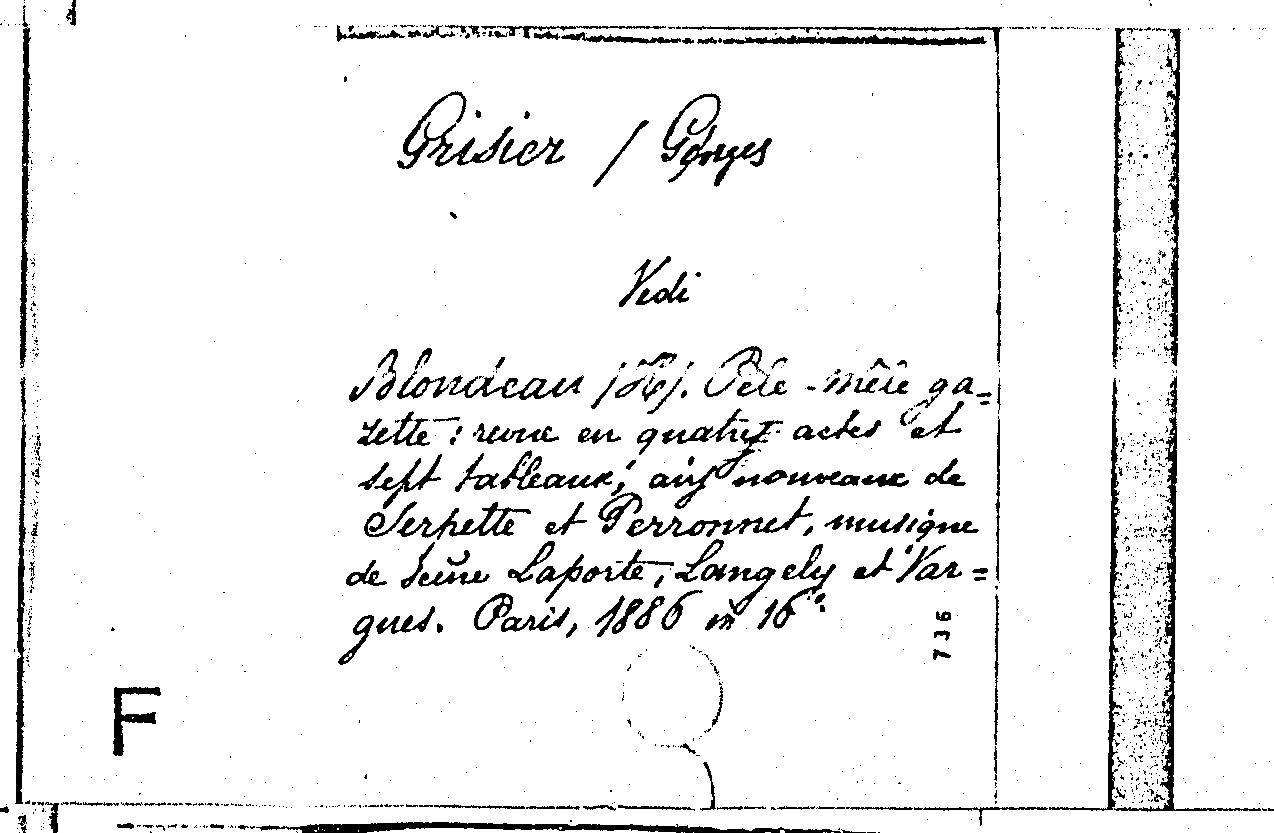 Grisier / Georges
Vedi
Blondeau (H). Pêle-mêle ga=
zette : revue en quatre actes et
sept tableaux; airs nouveaux de
Serpette et Perronnet, musique
de scène Laporte, Langely et Var=
gues. Paris, 1886 in 16°.
736
F